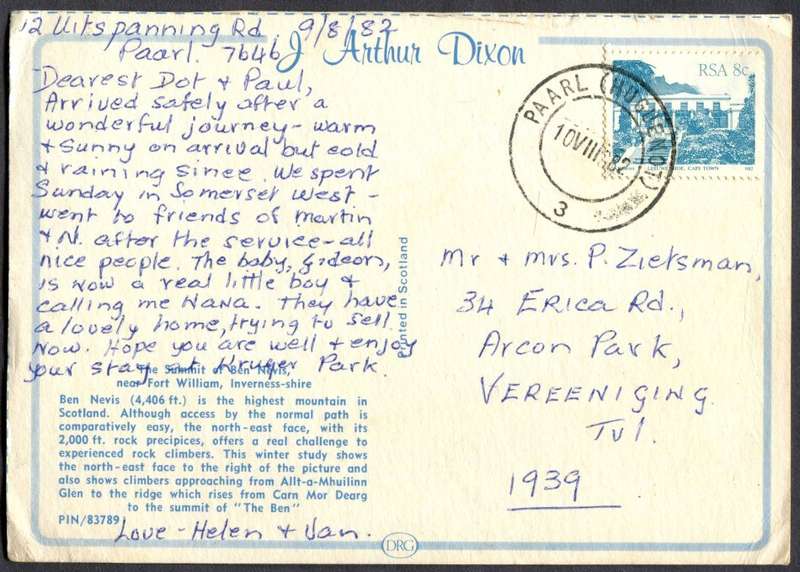 12 Uitspanning Rd. 9/8/82
Paarl. 7646
J Arthur Dixon
Dearest Dot & Paul,
Arrived safely after a
wonderful journey - warm
& sunny on arrival but cold
& raining since. We spent
Sunday in Somerset West -
went to friends of Martin
& N. after the service - all
nice people. The baby, Gideon,
is now a real little boy &
calling me Nana. They have
a lovely home, trying to sell
now. Hope you are well & enjoy
your stay at Kruger Park.
The Summit of Ben Nevis,
near Fort William, Inverness-shire
Ben Nevis (4,406 ft.) is the highest mountain in
Scotland. Although access by the normal path is
comparatively easy, the north-east face, with its
2,000 ft. rock precipices, offers a real challenge to
experienced rock climbers. This winter study shows
the north-east face to the right of the picture and
also shows climbers approaching from Allt-a-Mhuilinn
Glen to the ridge which rises from Carn Mor Dearg
to the summit of "The Ben"
PIN/83789
Love - Helen & Van.
Printed in Scotland
DRG
RSA 8c
CAPE TOWN
1982
PAARL (HUGUENOT)
10 VIII 82
3
Mr & Mrs. P. Zietsman,
34 Erica Rd.,
Arcon Park,
VEREENIGING.
Tvl.
1939